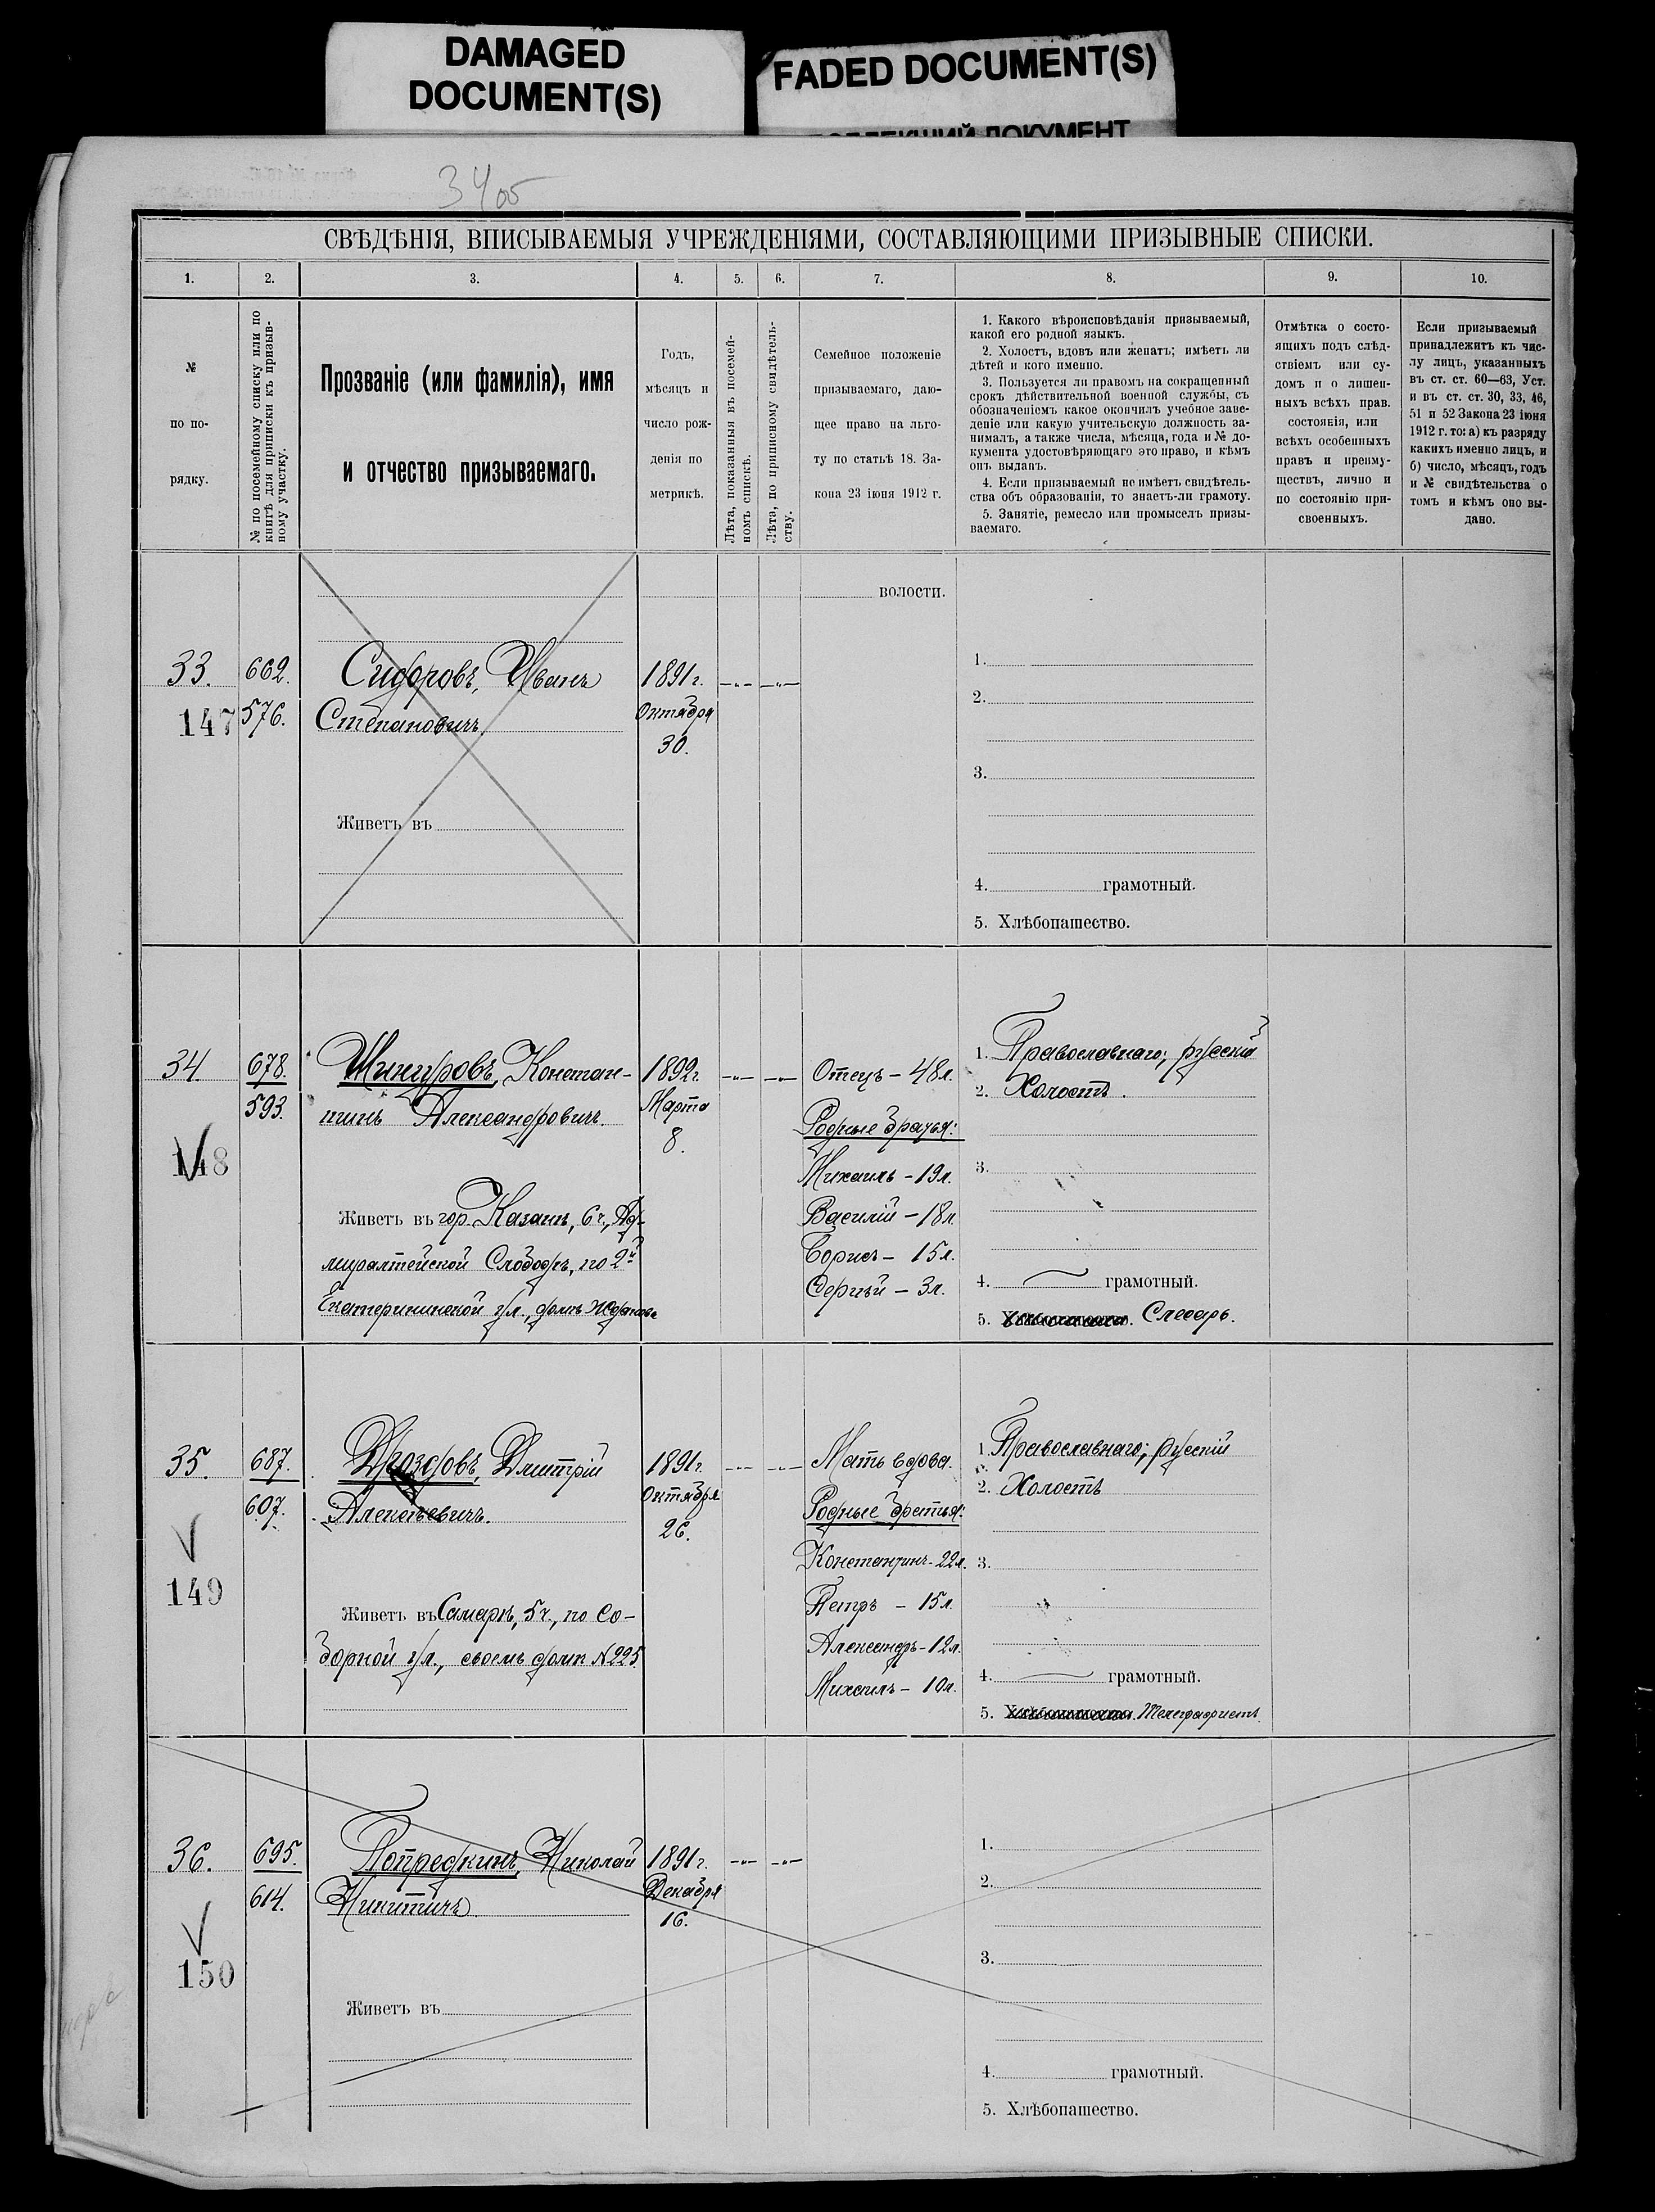 DAMAGED
DOCUMENT(S)
FADED DOCUMENT(S)
ДОКУМЕНТ
34об
СВѢДѢНІЯ, ВПИСЫВАЕМЫЯ УЧРЕЖДЕНІЯМИ, СОСТАВЛЯЮЩИМИ ПРИЗЫВНЫЕ СПИСКИ.
1. 2. 3. 4. 5. 6. 7. 8. 9. 10.
№
по по-
рядку.
№ по посемейному списку или по
книгѣ для приписки къ призыв-
ному участку.
Прозваніе (или фамилія), имя
и отчество призываемаго.
Годъ,
мѣсяцъ и
число рож-
денія по
метрикѣ.
Лѣта, показанныя въ посемей-
номъ спискѣ.
Лѣта, по приписному свидѣтель-
ству.
Семейное положеніе
призываемаго, даю-
щее право на льго-
ту по статьѣ 18. За-
кона 23 іюня 1912 г.
1. Какого вѣроисповѣданія призываемый,
какой его родной языкъ.
2. Холостъ, вдовъ или женатъ; имѣетъ ли
дѣтей и кого именно.
3. Пользуется ли правомъ на сокращенный
срокъ дѣйствительной военной службы, съ
обозначеніемъ какое окончилъ учебное заве-
деніе или какую учительскую должность за-
нималъ, а также числа, мѣсяца, года и № до-
кумента удостовѣряющаго это право, и кѣмъ
онъ выданъ.
4. Если призываемый не имѣетъ свидѣтель-
ства объ образованіи, то знаетъ-ли грамоту.
5. Занятіе, ремесло или промыселъ призы-
ваемаго.
Отмѣтка о состо-
ящихъ подъ слѣд-
ствіемъ или су-
домъ и о лишен-
ныхъ всѣхъ прав.
состоянія, или
всѣхъ особенныхъ
правъ и преиму-
ществъ, лично и
по состоянію при-
своенныхъ.
Если призываемый
принадлежитъ къ чис-
лу лицъ, указанныхъ
въ ст. ст. 60—63, Уст.
и въ ст. ст. 30, 33, 46,
51 и 52 Закона 23 іюня
1912 г. то: а) къ разряду
какихъ именно лицъ, и
б) число, мѣсяцъ, годъ
и № свидѣтельства о
томъ и кѣмъ оно вы-
дано.
волости.
33.
147
662.
576.
Сидоровъ, Иванъ
Степановичъ.
Живетъ въ
1891 г.
Октября
30.
1.
2.
3.
4. грамотный.
5. Хлѣбопашество.
34.
148
678.
593.
Константинъ Александровичъ.
Живетъ въ гор. Казани, 6 ч., Ад-
миралтейской Слободѣ, по 2й
Екатерининской ул., домъ
1892 г.
Марта
8.
Отецъ – 48 л.
Родные братья:
Михаилъ – 19 л.
Василій – 18 л.
Борисъ – 15 л.
Сергѣй – 3 л.
1. Православнаго; русскій
2. Холостъ.
3.
4. грамотный.
5. Хлѣбопашество. Слесарь.
35.
149
687.
607.
Дроздовъ, Дмитрій
Алексѣевичъ.
Живетъ въ Самарѣ, 5 ч., по Со-
борной ул., своемъ домѣ № 225
1891 г.
Октября
26.
Мать вдова.
Родные братья:
Константинъ – 22 л.
Петръ – 15 л.
Александръ – 12 л.
Михаилъ – 10 л.
1. Православнаго; русскій
2. Холостъ
3.
4. грамотный.
5. Хлѣбопашество. Телеграфистъ.
36.
150
695.
614.
Попредкинъ, Николай
Никитичъ
Живетъ въ
1891 г.
Декабря
16.
1.
2.
3.
4. грамотный.
5. Хлѣбопашество.